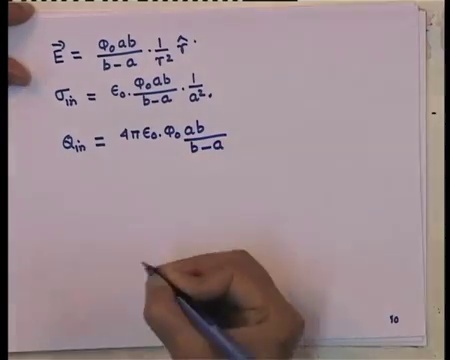 E⃗ = φ₀ab/(b−a) · 1/r² r̂.
σᵢₙ = ε₀ · φ₀ab/(b−a) · 1/a².
Qᵢₙ = 4πε₀ · φ₀ ab/(b−a)
10